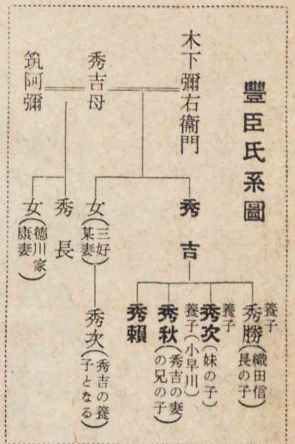 豐臣氏系圖
木下彌右衞門
秀吉母
筑阿彌
秀吉
女(三好某妻)
秀長
女(德川家康妻)
養子
秀勝(織田信長の子)
養子
秀次(妹の子)
養子(小早川)
秀秋(秀吉の妻の兄の子)
秀賴
秀次(秀吉の養子となる)